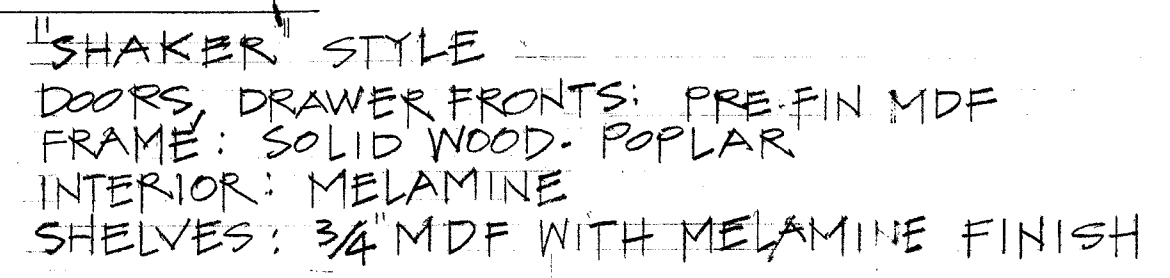 "SHAKER" STYLE
DOORS, DRAWER FRONTS: PRE-FIN MDF
FRAME: SOLID WOOD. POPLAR
INTERIOR: MELAMINE
SHELVES: 3/4" MDF WITH MELAMINE FINISH